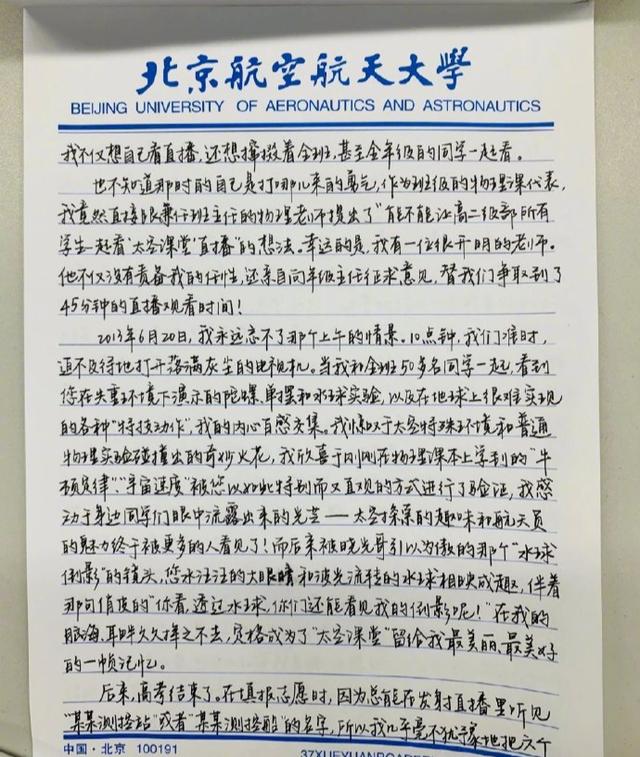 北京航空航天大學
BEIJING UNIVERSITY OF AERONAUTICS AND ASTRONAUTICS
我不仅想自己看直播，还想撺掇着全班，甚至全年级的同学一起看。
也不知道那时的自己是打哪儿来的勇气，作为班级的物理课代表，
我竟然直接跟兼任班主任的物理老师提出了“能不能让高二级部所有
学生一起看‘太空课堂’直播”的想法。幸运的是，我有一位很开明的老师。
他不仅没有责备我的任性，还亲自向年级主任征求意见，替我们争取到了
45分钟的直播观看时间！
2013年6月20日，我永远忘不了那个上午的情景。10点钟，我们准时、
迫不及待地打开落满灰尘的电视机。当我和全班50多名同学一起，看到
您在失重环境下演示的陀螺、单摆和水球实验，以及在地球上很难实现
的各种“特技动作”，我的内心百感交集。我惊叹于太空特殊环境和普通
物理实验碰撞出的奇妙火花，我欣喜于刚刚在物理课本上学到的“牛
顿定律”、“宇宙速度”被您以如此特别而又直观的方式进行了验证，我感
动于身边同学们眼中流露出来的光芒——太空探索的趣味和航天员
的魅力终于被更多的人看见了！而后来被晓光哥引以为傲的那个“水球
倒影”的镜头，您水汪汪的大眼睛和波光流转的水球相映成趣，伴着
那句俏皮的“你看，透过水球，你们还能看见我的倒影呢！”在我的
脑海、耳畔久久挥之不去，定格成为了“太空课堂”留给我最美丽、最美好
的一帧记忆。
后来，高考结束了。在填报志愿时，因为总能在发射直播里听见
“某某测控站”或者“某某测控船”的名字，所以我几乎毫不犹豫地把六个
中国·北京 100191